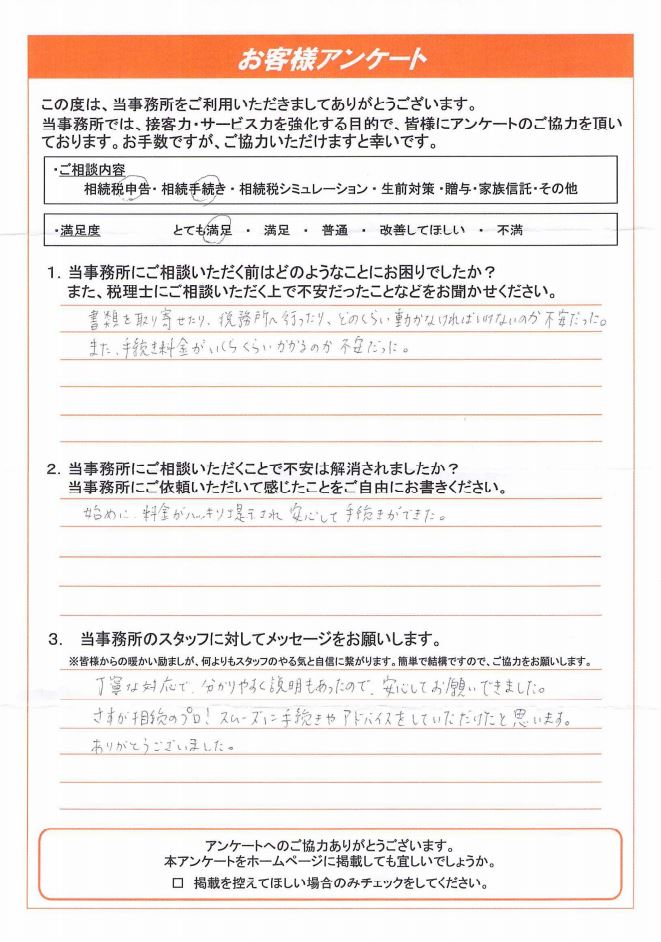 お客様アンケート
この度は、当事務所をご利用いただきましてありがとうございます。
当事務所では、接客力・サービス力を強化する目的で、皆様にアンケートのご協力を頂い
ております。お手数ですが、ご協力いただけますと幸いです。
・ご相談内容
相続税申告・相続手続き・相続税シミュレーション・生前対策・贈与・家族信託・その他
・満足度 とても満足 ・ 満足 ・ 普通 ・ 改善してほしい ・ 不満
1. 当事務所にご相談いただく前はどのようなことにお困りでしたか？
また、税理士にご相談いただく上で不安だったことなどをお聞かせください。
書類を取り寄せたり、税務所へ行ったり、どのくらい動かなければいけないのか不安だった。
また、手続き料金がいくらくらいかかるのか不安だった。
2. 当事務所にご相談いただくことで不安は解消されましたか？
当事務所にご依頼いただいて感じたことをご自由にお書きください。
始めに、料金がハッキリ提示され安心して手続きができた。
3. 当事務所のスタッフに対してメッセージをお願いします。
※皆様からの暖かい励ましが、何よりもスタッフのやる気と自信に繋がります。簡単で結構ですので、ご協力をお願いします。
丁寧な対応で、分かりやすく説明もあったので、安心してお願いできました。
さすが相続のプロ！スムーズに手続きやアドバイスをしていただけたと思います。
ありがとうございました。
アンケートへのご協力ありがとうございます。
本アンケートをホームページに掲載しても宜しいでしょうか。
□ 掲載を控えてほしい場合のみチェックをしてください。